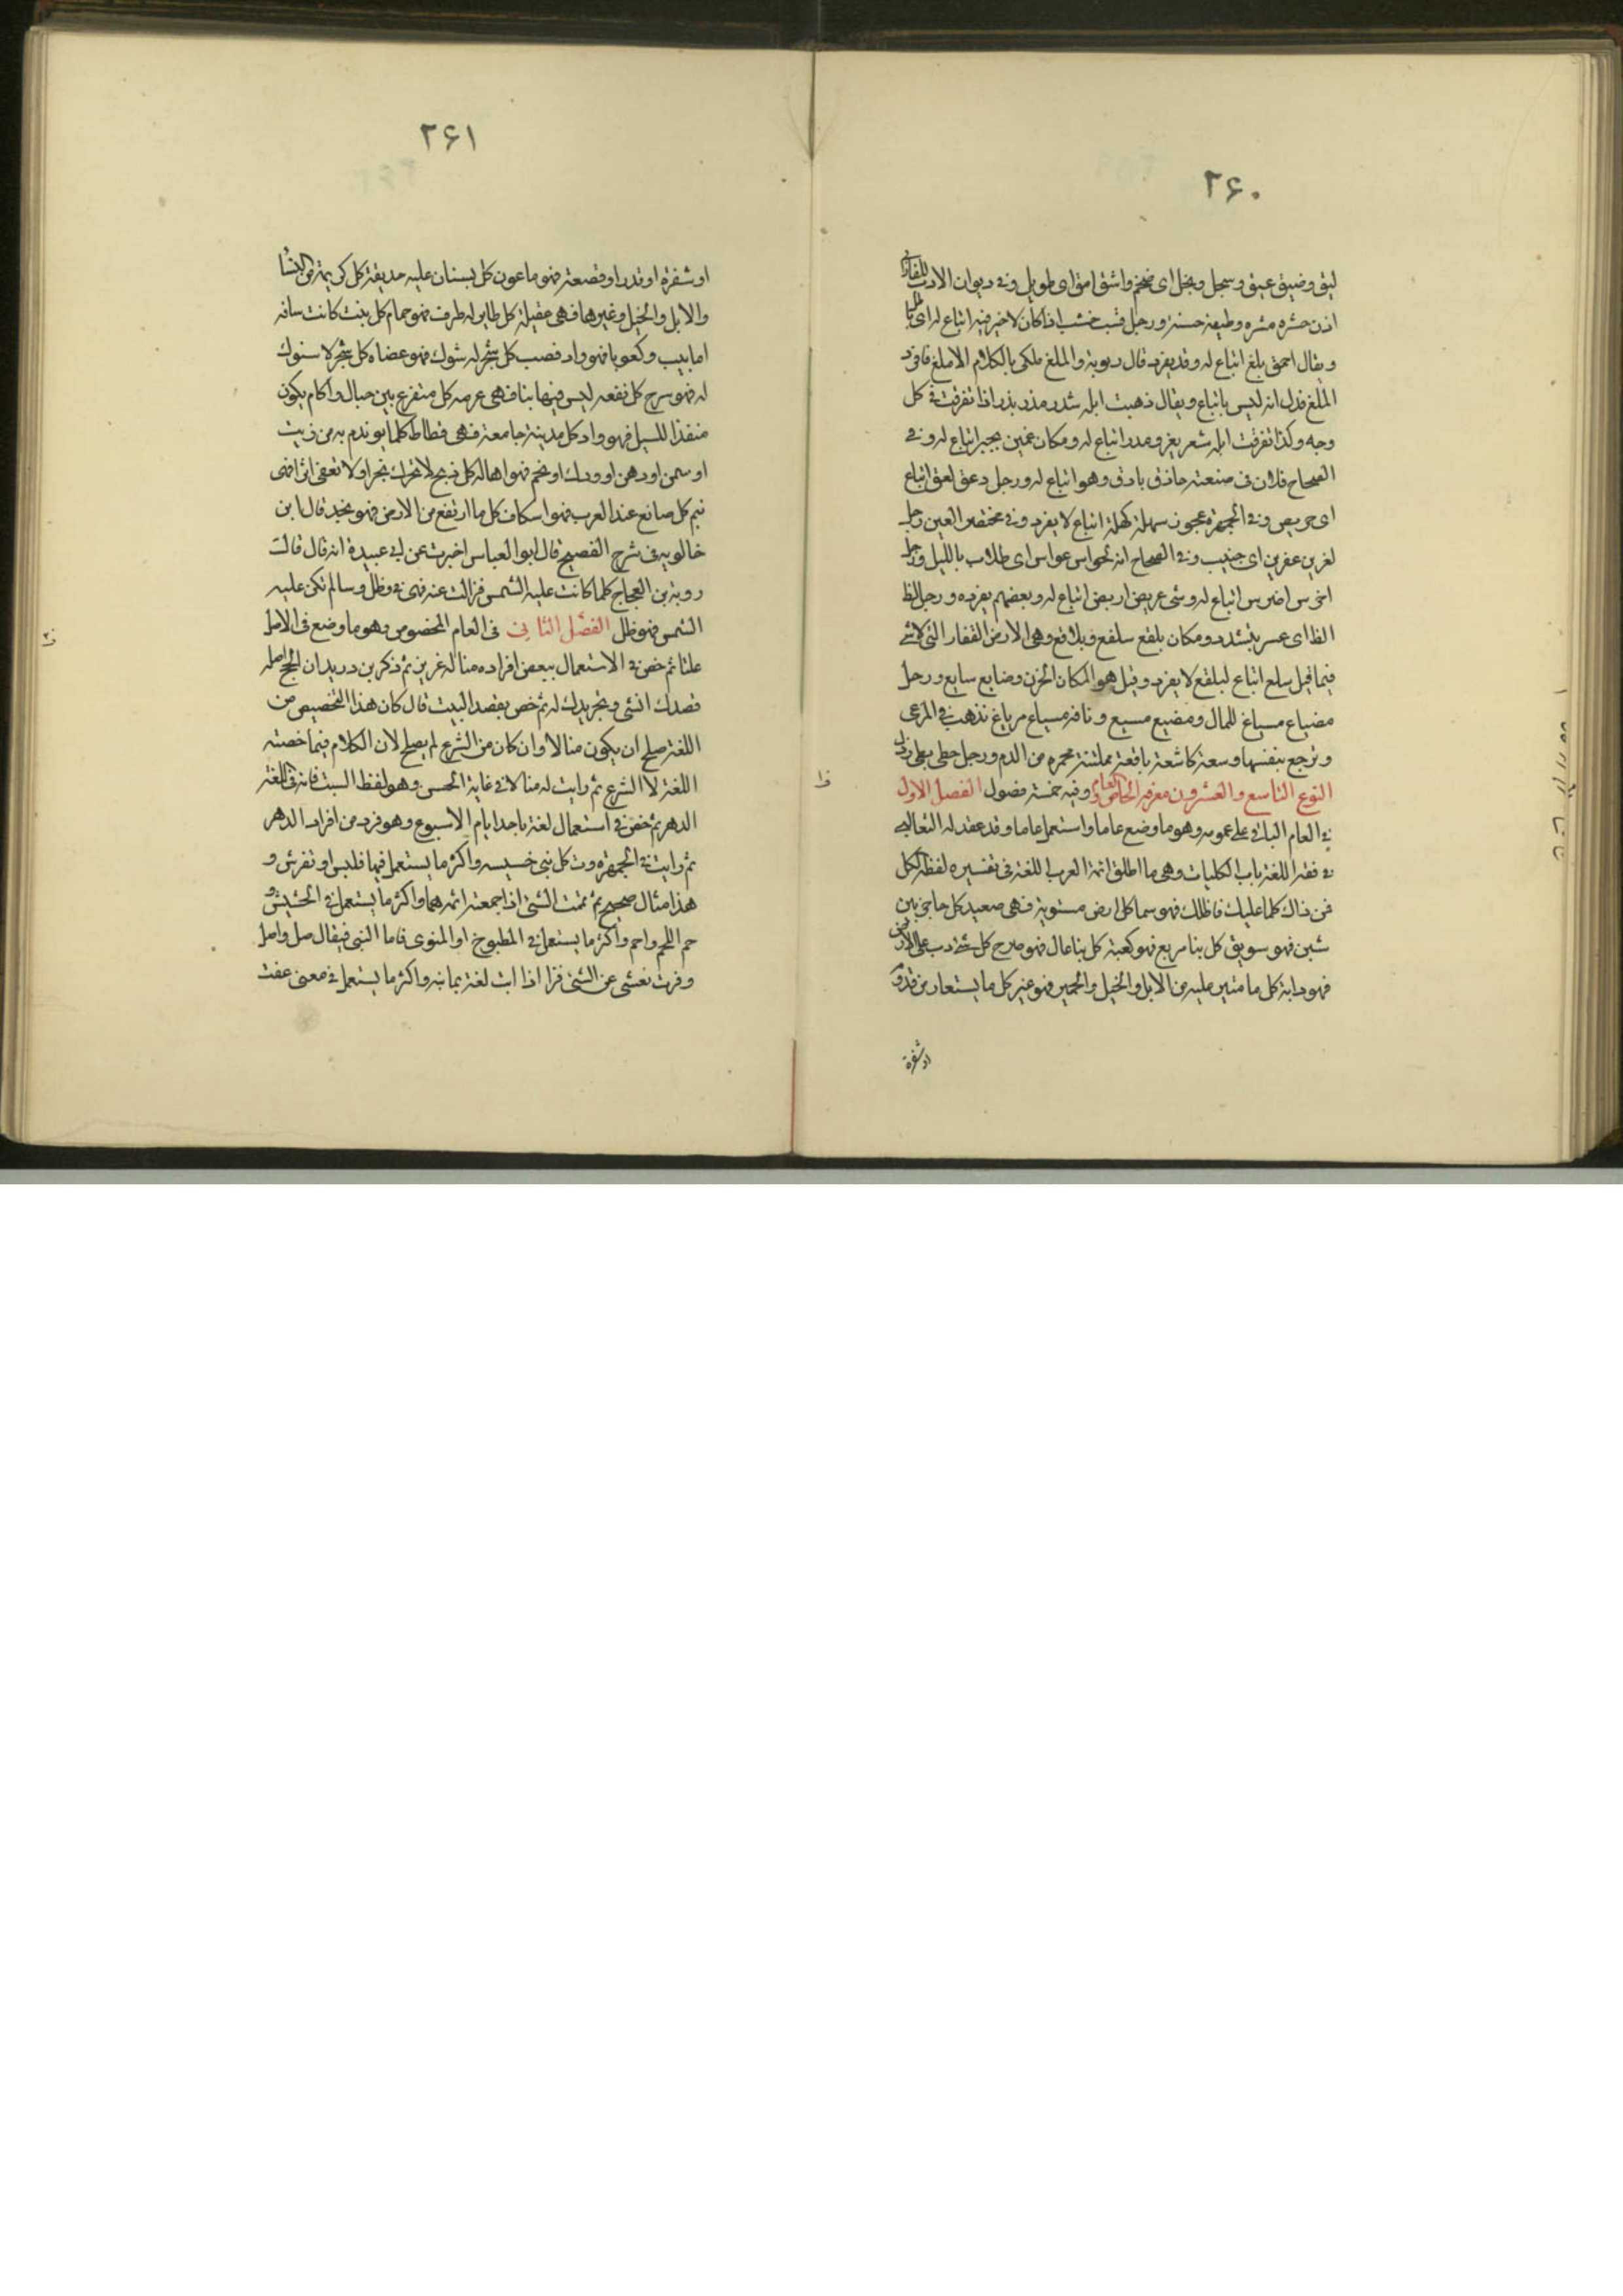 ۲۶۰
لیق وضیق عیق وسبحل وبحل ای ضخم واشق امق ای طویل وفی دیوان الادب للفارابی
اذن حشره مشره وطیفه حسنة ورجل قشب خشب اذا كان لا خیر فیه اتباع له ای
ویقال احمق بلغ اتباع له وقد یفرد قال روبة والملغ ملكی بالكلام الاملغ فافرد
الملغ فدل انه لیس باتباع ویقال ذهبت ابله شذر مذر بذر اذا تفرقت فی كل
وجه وكذا تفرقت ابله شعر بغر ومدر اتباع له ومكان عمیر بجیر اتباع له وفی
الصحاح فلان فی صنعته حاذق باذق وهو اتباع له ورجل دعق لعق اتباع
ای حریص وفی الجمهرة عجوز سهلة كهلة اتباع لا یفرد وفی مختصر العین رجل
لغرین عفرین ای خبیث وفی الصحاح انه لحواس عواس ای طلاب باللیل ورجل
اخرس اضرس اتباع له وشی عریض اریض اتباع له وبعضهم یفرده ورجل لظ
الظ ای عسر یتشدد ومكان بلقع سلقع وبلاقع وهی الارض القفار التی لا شی
فیها قیل سلع اتباع لبلقع لا یفرد وقیل هو المكان الحزن وضایع سایع ورجل
مضیاع مسیاع للمال ومضیع مسیع وناقة مسیاع مریاع تذهب فی المرعی
وترجع بنفسها وسعة كاشعة باقعة مملتنة محمره من الدم ورجل حطی بطی رذل
النوع التاسع والعشرون معرفه الخاص والعام وفیه خمسة فصول الفصل الاول
فی العام الباقی علی عمومه وهو ما وضع عاما واستعمل عاما وقد عقد له الثعالبی
فی فقه اللغة باب الكلیات وهی ما اطلق ائمة العرب اللغة فی تفسیره لفظة كل
فمن ذاك كلما علیك فاظلك فهو سما كل ارض مستویة فهی صعید كل حاجز بین
شین فهو سویق كل بنا مربع فهو كعبة كل بنا عال فهو صرح كل شی دب علی الارض
فهو دابة كل ما متیر علیه من الابل والخیل والحمیر فهو عیر كل ما یستعار من قدوم
او شفرة
۲۶۱
او شفرة او قدر او قصعة فهو ماعون كل بستان علیه حدیقة كل كریمة من النسا
والابل والخیل وغیرهما فهی عقیلة كل طایر له طرف فهو حمام كل بنت كانت ساقه
انابیب وكعوبا فهو واد قصب كل شجر له شوك فهو عضاه كل شجر لا شوك
له فهو سرح كل نقعه لیس فیها بنا فهی عرصه كل منفرج بین جبال واكام یكون
منفذا للسیل فهو واد كل مدینة جامعة فهی فسطاط كلما یوتدم به من زیت
او سمن او دهن او ودك او شحم فهو اهاله كل ریح لا تحرك شجرا ولا تعفی اثرا فهی
نیم كل صانع عند العرب فهو اسكاف كل ما ارتفع من الارض فهو نجد قال ابن
خالویه فی شرح الفصیح قال ابو العباس اخبرت عن ابی عبیدة انه قال قالت
روبة بن العجاج كلما كانت علیه الشمس فزالت عنه فهی فی وظل وسالم تكن علیه
الشمس فهو ظل الفصل الثانی فی العام المخصوص وهو ما وضع فی الاصل
علنا ثم خص فی الاستعمال ببعض افراده مثاله غریزة ثم ذكر بن درید ان الحج اصله
قصدك الشی وتجریدك له ثم خص بقصد البیت قال كان هذا التخصیص من
اللغة صلح ان یكون مثالا وان كان من الشرع لم یصلح لان الكلام فیما خصته
اللغة لا الشرع ثم رایت له مثالا فی غایة الحسن وهو لفظ السبت فانه فی اللغة
الدهر ثم خص فی استعمال لغة باحد ایام الاسبوع وهو فرد من افراد الدهر
ثم رایت فی الجمهرة رث كل شی خسیسه واكثر ما یستعمل فیما فلبس او تفرش و
هذا مثال صحیح ثم ثممت الشی اذا جمعته اثمه هما واكثر ما یستعمل فی الحشیش و
خم اللحم واخم واكثر ما یستعمل فی المطبوخ او المنوی فاما النی فیقال صل واصل
وفزت نعشی عن الشی فزا اذا ابت لغة یمانیه واكثر ما یستعمل فی معنی عفت